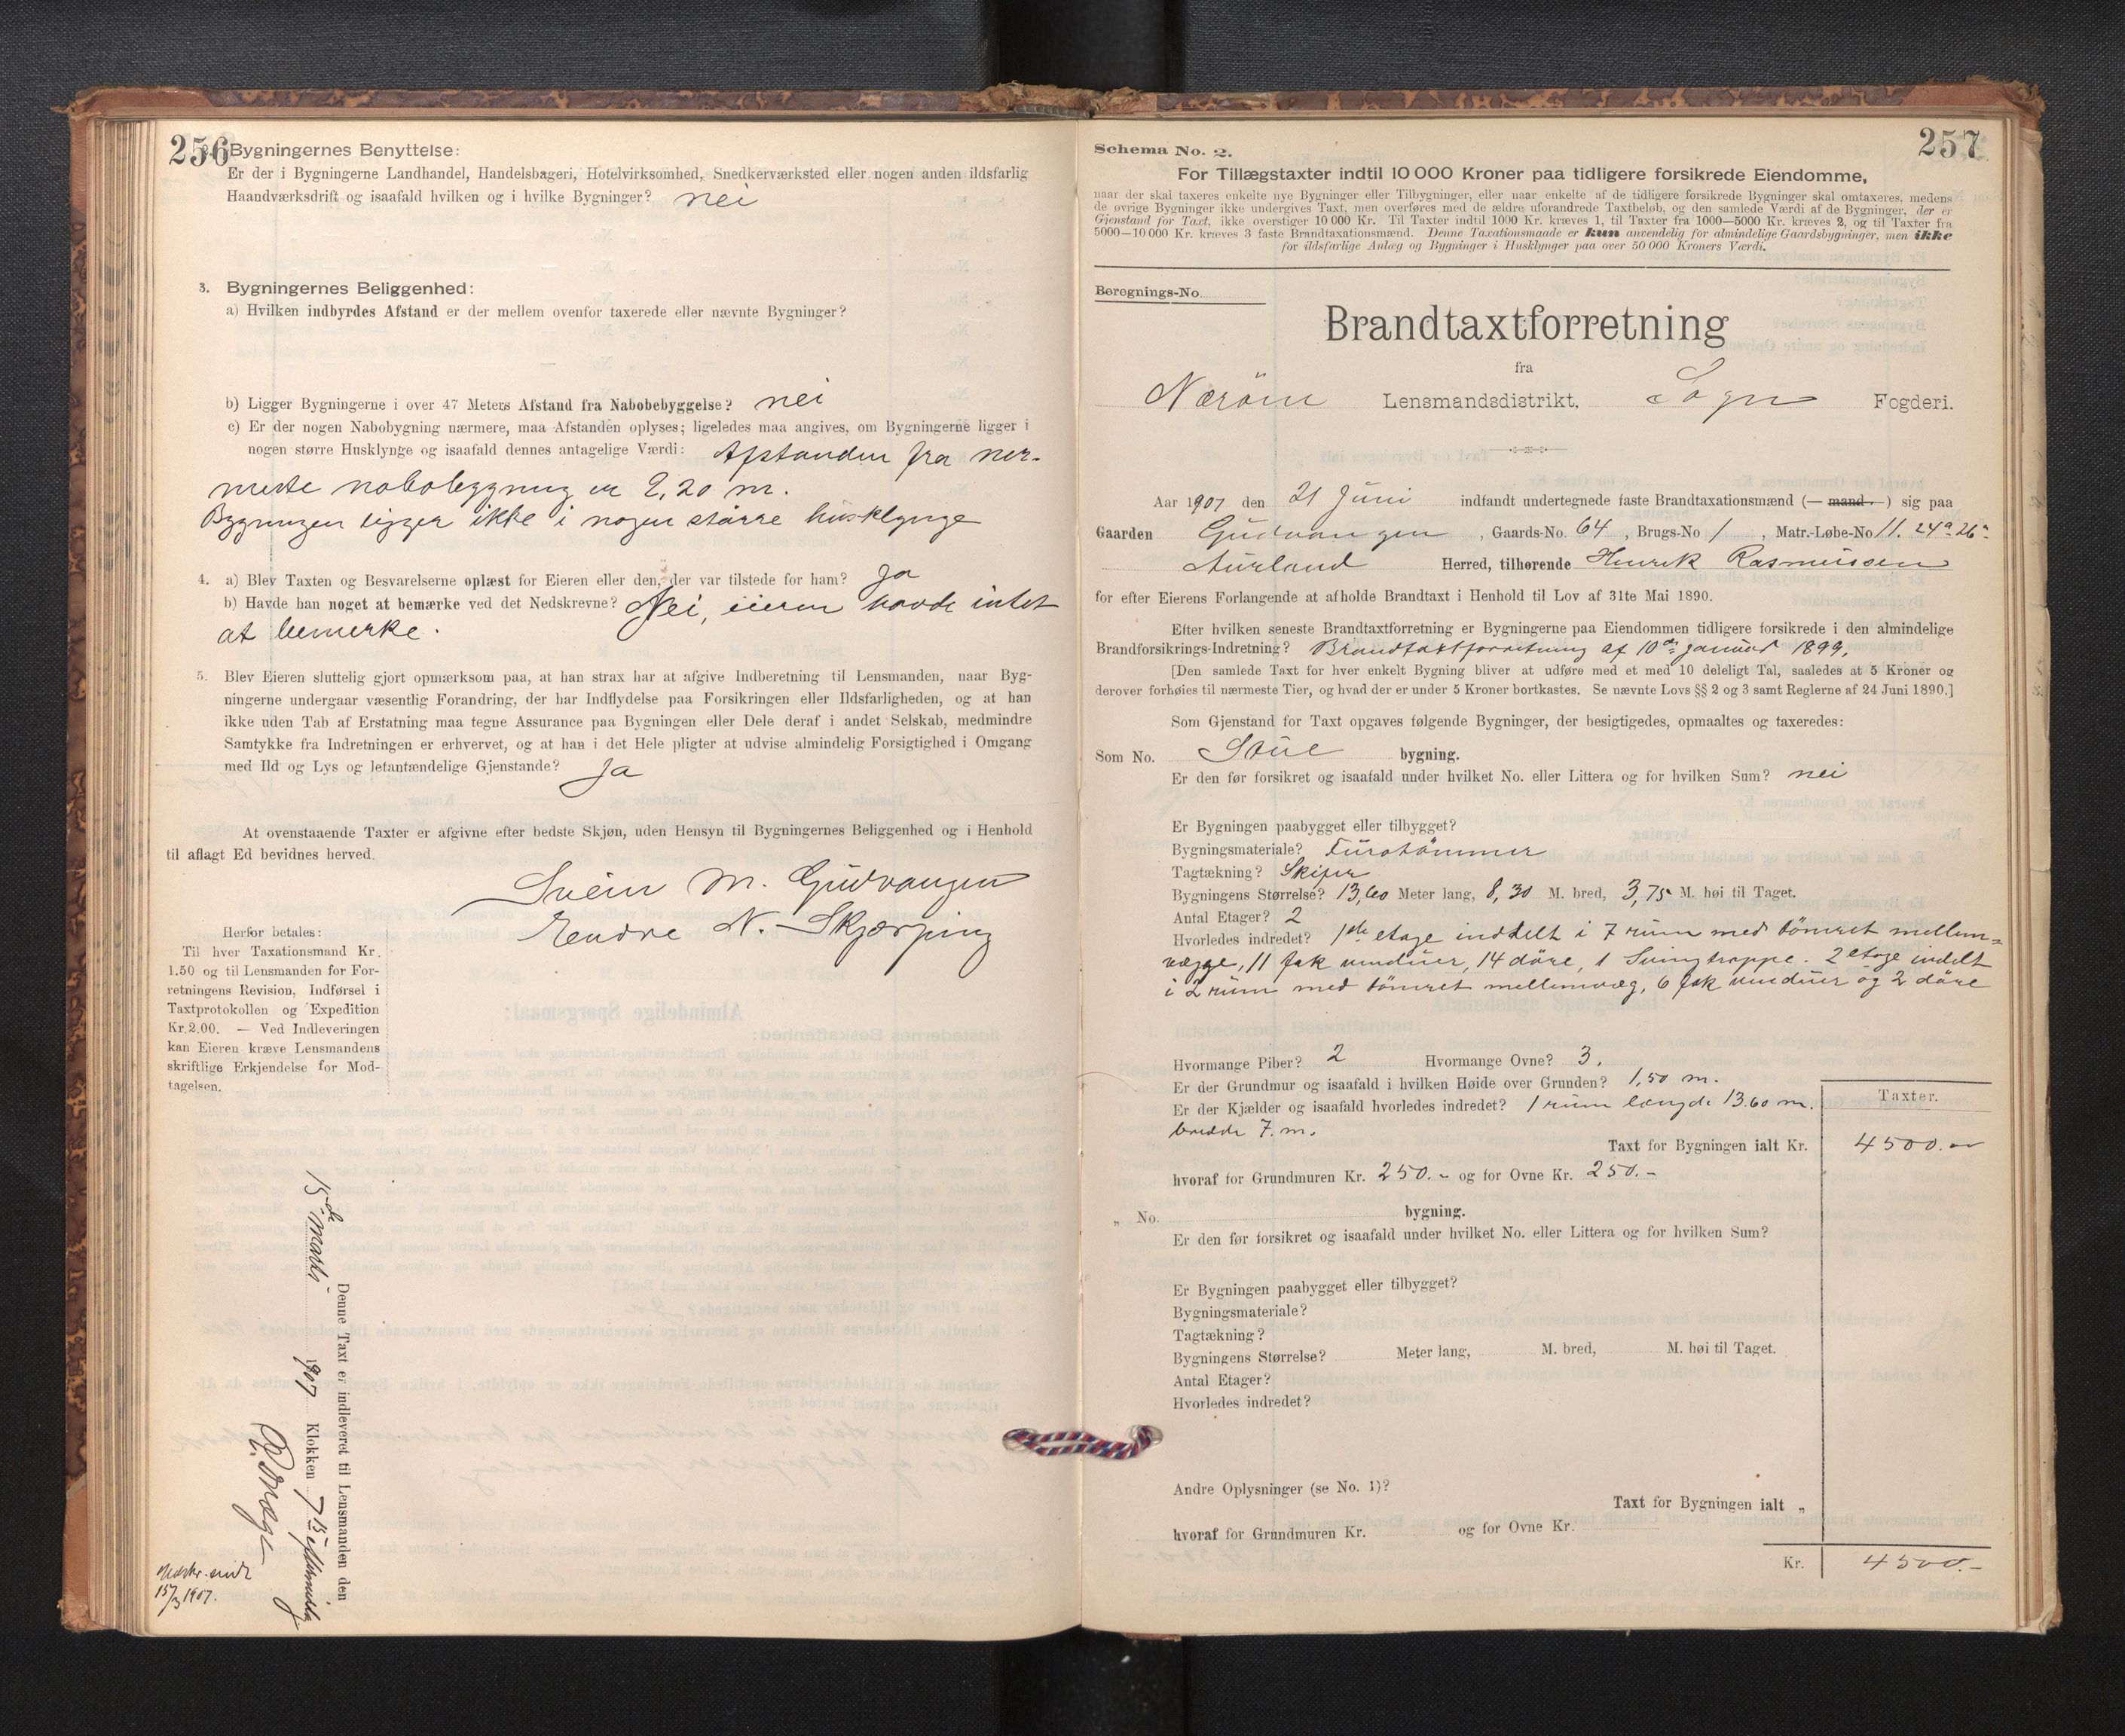 256
2. Bygningernes Benyttelse:
Er der i Bygningerne Landhandel, Handelsbageri, Hotelvirksomhed, Snedkerværksted eller nogen anden ildsfarlig
Haandværksdrift og isaafald hvilken og i hvilke Bygninger? nei
3. Bygningernes Beliggenhed:
a) Hvilken indbyrdes Afstand er der mellem ovenfor taxerede eller nævnte Bygninger?
b) Ligger Bygningerne i over 47 Meters Afstand fra Nabobebyggelse? nei
c) Er der nogen Nabobygning nærmere, maa Afstanden oplyses; ligeledes maa angives, om Bygningerne ligger i
nogen større Husklynge og isaafald dennes antagelige Værdi: Afstanden fra ner-
meste nabobygning er 2,20 m.
Bygningen ligger ikke i nogen større husklynge
4. a) Blev Taxten og Besvarelserne oplæst for Eieren eller den, der var tilstede for ham? Ja
b) Havde han noget at bemærke ved det Nedskrevne? Nei, eieren havde intet
at bemerke.
5. Blev Eieren sluttelig gjort opmærksom paa, at han strax har at afgive Indberetning til Lensmanden, naar Byg-
ningerne undergaar væsentlig Forandring, der har Indflydelse paa Forsikringen eller Ildsfarligheden, og at han
ikke uden Tab af Erstatning maa tegne Assurance paa Bygningen eller Dele deraf i andet Selskab, medmindre
Samtykke fra Indretningen er erhvervet, og at han i det Hele pligter at udvise almindelig Forsigtighed i Omgang
med Ild og Lys og letantændelige Gjenstande? Ja
At ovenstaaende Taxter er afgivne efter bedste Skjøn, uden Hensyn til Bygningernes Beliggenhed og i Henhold
til aflagt Ed bevidnes herved.
Svein M. Gudvangen
Endre N. Skjerping
Herfor betales:
Til hver Taxationsmand Kr.
1.50 og til Lensmanden for For-
retningens Revision, Indførsel i
Taxtprotokollen og Expedition
Kr. 2.00. — Ved Indleveringen
kan Eieren kræve Lensmandens
skriftlige Erkjendelse for Mod-
tagelsen.
Denne Taxt er indleveret til Lensmanden den
15de 1907 Klokken 7
1907.
257
Schema No. 2.
For Tillægstaxter indtil 10 000 Kroner paa tidligere forsikrede Eiendomme,
naar der skal taxeres enkelte nye Bygninger eller Tilbygninger, eller naar enkelte af de tidligere forsikrede Bygninger skal omtaxeres, medens
de øvrige Bygninger ikke undergives Taxt, men overføres med de ældre uforandrede Taxtbeløb, og den samlede Værdi af de Bygninger, der er
Gjenstand for Taxt, ikke overstiger 10 000 Kr. Til Taxter indtil 1000 Kr. kræves 1, til Taxter fra 1000—5000 Kr. kræves 2, og til Taxter fra
5000—10 000 Kr. kræves 3 faste Brandtaxationsmænd. Denne Taxationsmaade er kun anvendelig for almindelige Gaardsbygninger, men ikke
for ildsfarlige Anlæg og Bygninger i Husklynger paa over 50 000 Kroners Værdi.
Beregnings-No.
Brandtaxtforretning
fra
Nerøns Lensmandsdistrikt, Sogn Fogderi.
Aar 1907 den 21 Juni indfandt undertegnede faste Brandtaxationsmænd (— mand. —) sig paa
Gaarden Gudvangen, Gaards-No. 64, Brugs-No 1, Matr.-Løbe-No 11. 24a 26a
Aurland Herred, tilhørende Henrik Rasmussen
for efter Eierens Forlangende at afholde Brandtaxt i Henhold til Lov af 31te Mai 1890.
Efter hvilken seneste Brandtaxtforretning er Bygningerne paa Eiendommen tidligere forsikrede i den almindelige
Brandforsikrings-Indretning? Brandtaxtforretning af 10de Januar 1899.
[Den samlede Taxt for hver enkelt Bygning bliver at udføre med et med 10 deleligt Tal, saaledes at 5 Kroner og
derover forhøies til nærmeste Tier, og hvad der er under 5 Kroner bortkastes. Se nævnte Lovs §§ 2 og 3 samt Reglerne af 24 Juni 1890.]
Som Gjenstand for Taxt opgaves følgende Bygninger, der besigtigedes, opmaaltes og taxeredes:
Som No. Stue bygning.
Er den før forsikret og isaafald under hvilket No. eller Littera og for hvilken Sum? nei
Er Bygningen paabygget eller tilbygget?
Bygningsmateriale? Furutømmer
Tagtækning? Skifer
Bygningens Størrelse? 13,60 Meter lang, 8,30 M. bred, 3,75 M. høi til Taget.
Antal Etager? 2
Hvorledes indredet? 1ste etage inddelt i 7 rum med tømret mellem=
vægge, 11 fak vinduer, 14 døre, 1 Svingtrappe. 2 etage indelt
i 2 rum med tømret mellemvæg, 6 fak vinduer og 2 døre
Hvormange Piber? 2 Hvormange Ovne? 3.
Er der Grundmur og isaafald i hvilken Høide over Grunden? 1,50 m.
Er der Kjælder og isaafald hvorledes indredet? 1 rum længde 13.60 m.
bredde 7. m.
Taxter.
Taxt for Bygningen ialt Kr. 4500.
hvoraf for Grundmuren Kr. 250.- og for Ovne Kr. 250.-
„ No. bygning.
Er den før forsikret og isaafald under hvilket No. eller Littera og for hvilken Sum?
Er Bygningen paabygget eller tilbygget?
Bygningsmateriale?
Tagtækning?
Bygningens Størrelse? Meter lang, M. bred, M. høi til Taget.
Antal Etager?
Hvorledes indredet?
Andre Oplysninger (se No. 1)?
Taxt for Bygningen ialt „
hvoraf for Grundmuren Kr. og for Ovne Kr.
Kr. 4500.-